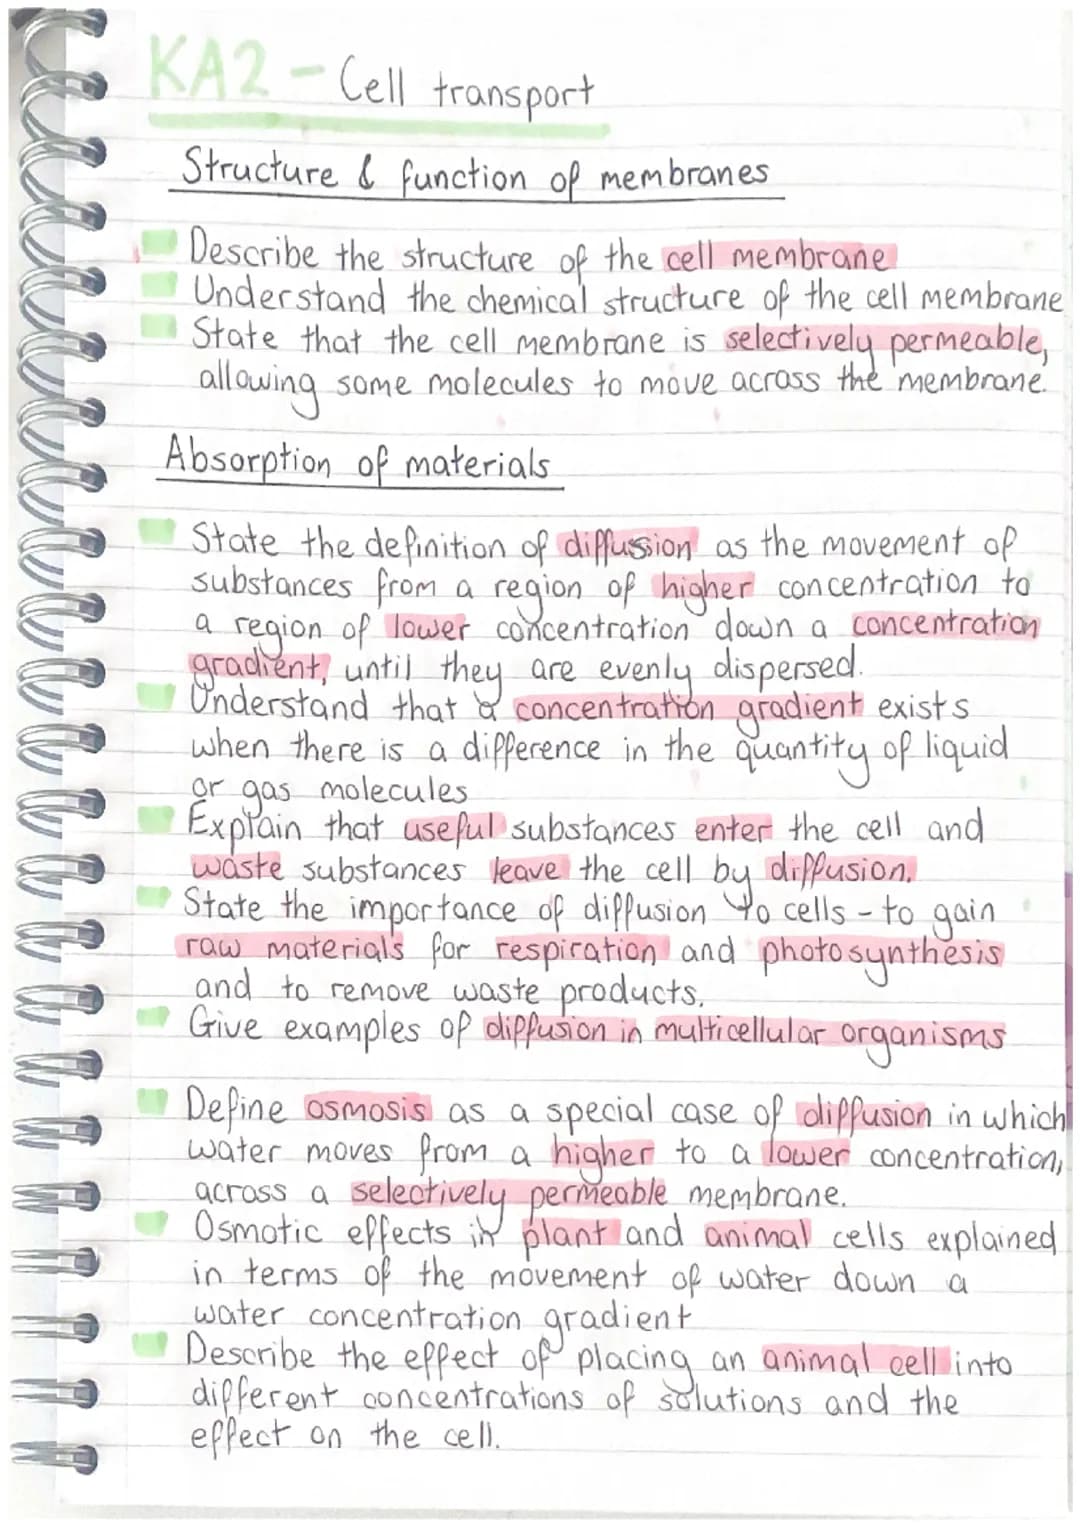 KA2 - Cell transport
Structure & function of membranes
Describe the structure of the cell membrane
Understand the chemical structure of the cell membrane
State that the cell membrane is selectively permeable,
allowing some molecules to move across the membrane.
Absorption of materials
State the definition of diffussion as the movement of
substances from a region of higher concentration to
a region of lower concentration down a concentration
gradient, until they are evenly dispersed.
Understand that a concentration gradient exists
when there is a difference in the quantity of liquid
or gas molecules
Explain that useful substances enter the cell and
waste substances leave the cell by diffusion.
State the importance of diffusion to cells - to gain
raw materials for respiration and photosynthesis
and to remove waste products.
Give examples of diffusion in multicellular organisms
Define osmosis as a special case of diffusion in which
water moves from a higher to a lower concentration,
across a selectively permeable membrane.
Osmotic effects in plant and animal cells explained
in terms of the movement of water down a
water concentration gradient
Describe the effect of placing an animal cell into
different concentrations of solutions and the
effect on the cell.